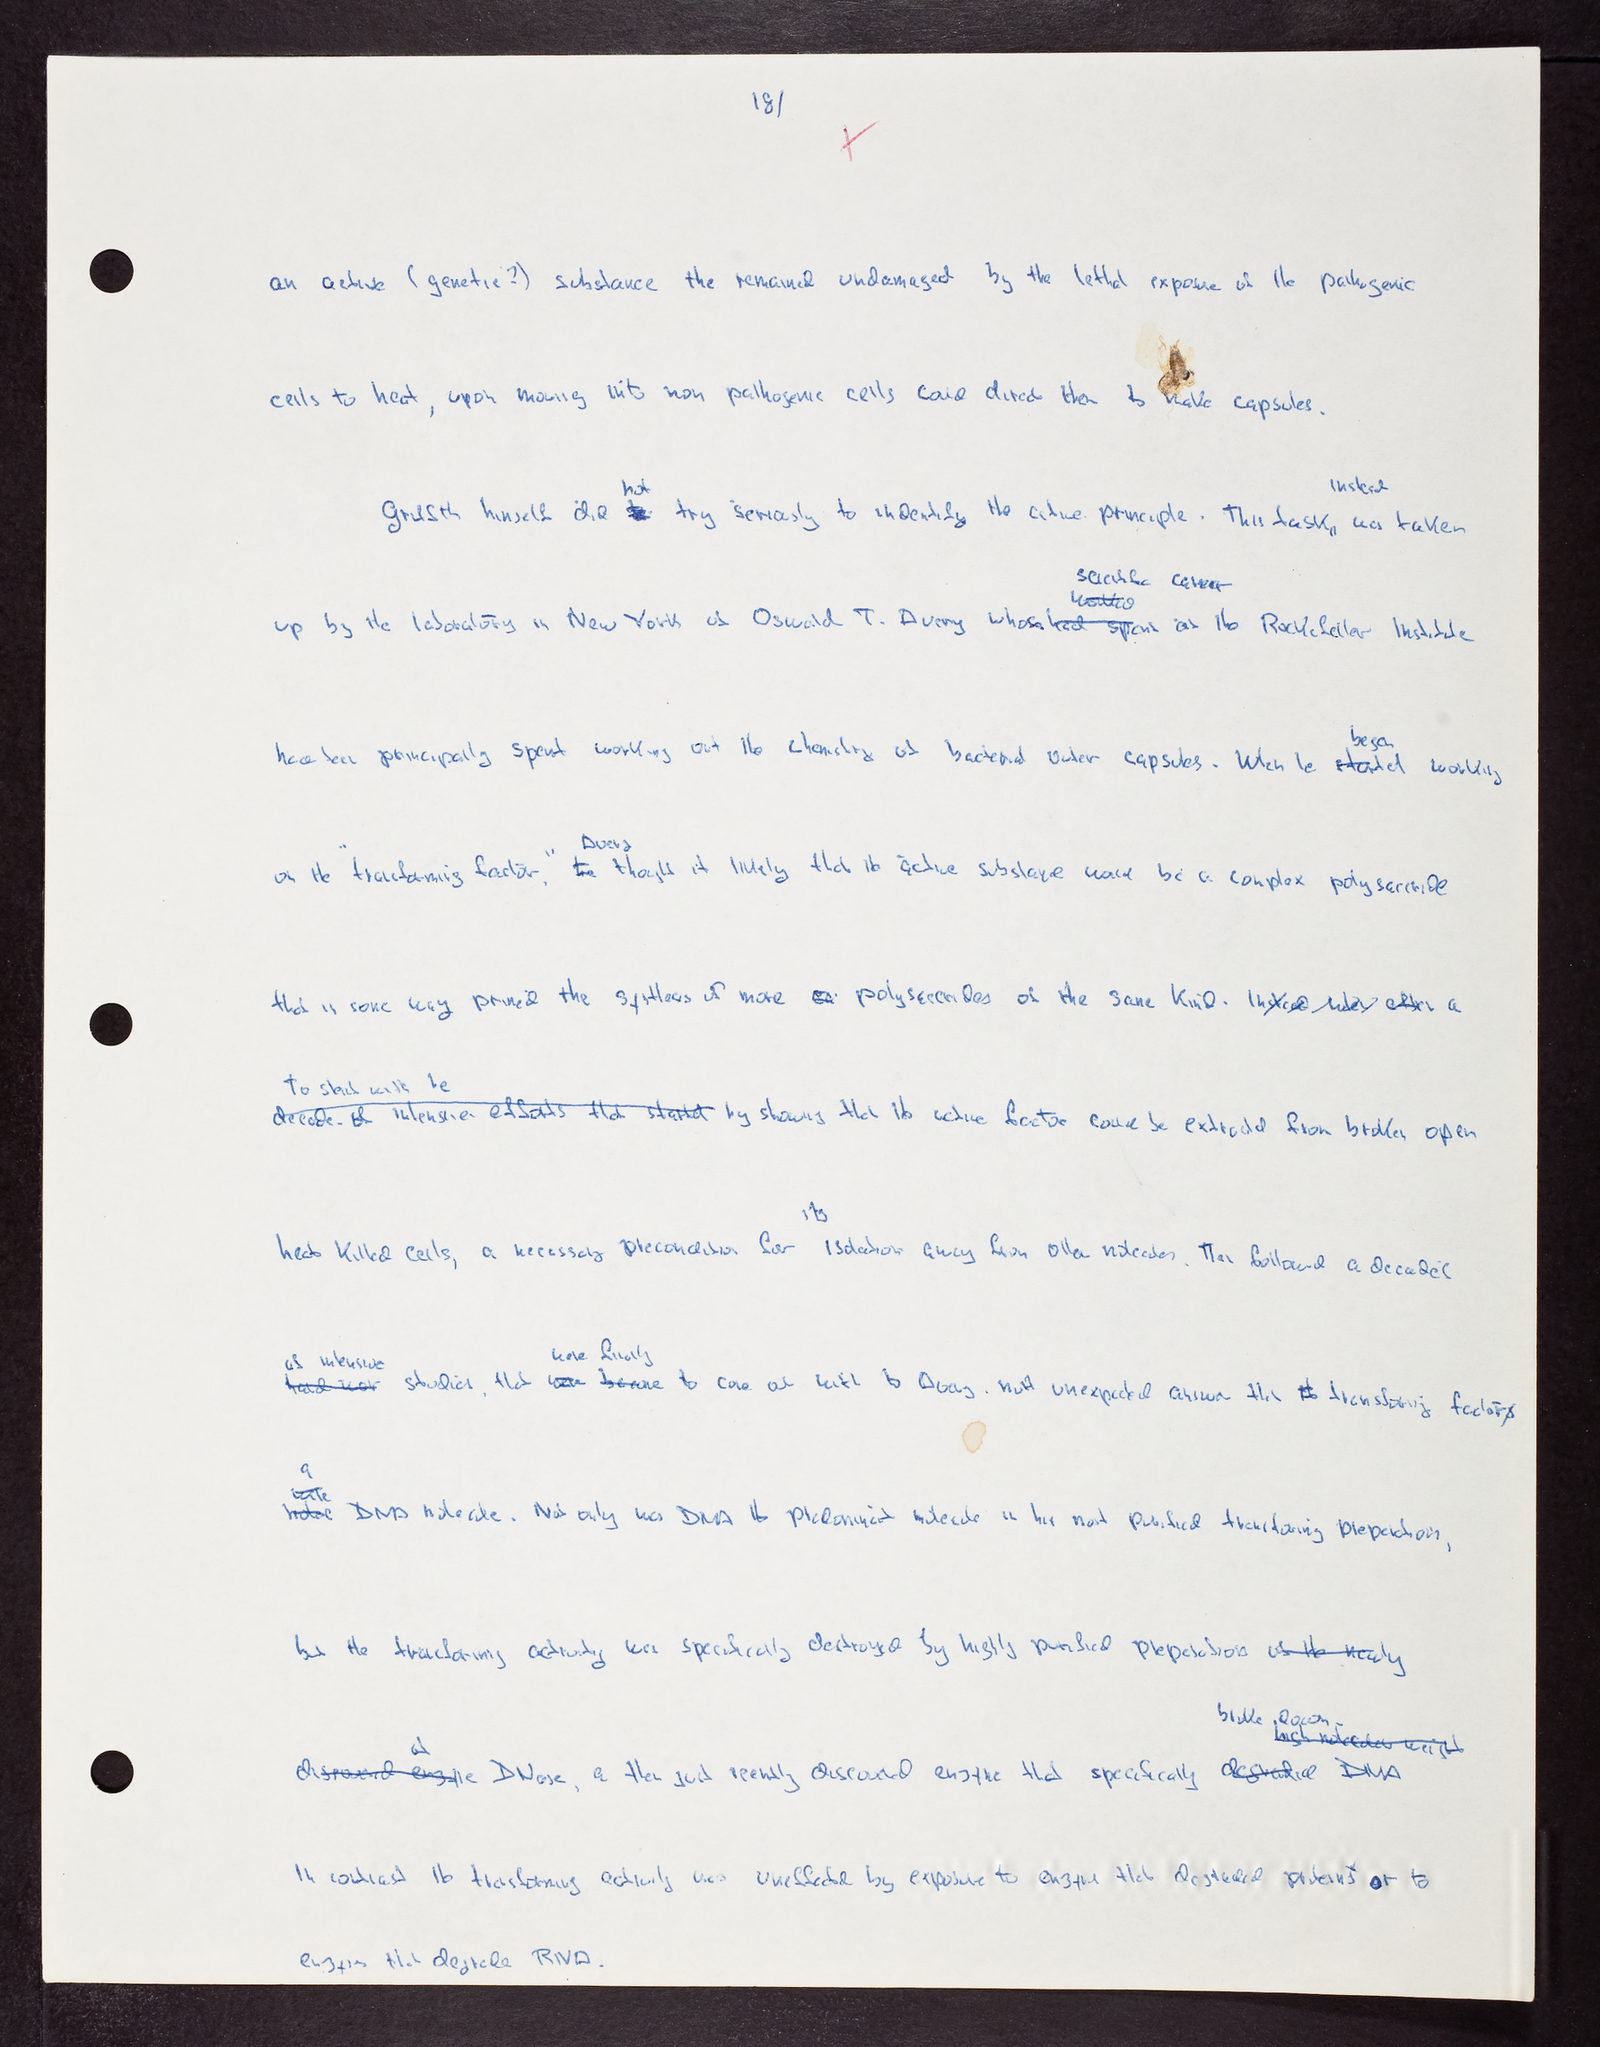 18/
an active (genetic?) substance the remained undamaged by the lethal exposure of the pathogenic
cells to heat, upon moving into non pathogenic cells could direct them to make capsules.
not
instead
Griffith himself did try seriously to indentify the active principle. This task, was taken
scientific career
worked
up by the laboratory in New York of Oswald T. Avery whose had spent at the Rockefeller Institute
began
had been principally spent working out the chemistry of bacterial outer capsules. When he started working
Avery
on the "transforming factor," he thought it likely that the active substance would be a complex polysaccride
that in some way primed the synthesis of more polysaccrides of the same kind. Instead after a
To start with he
decade of intensive efforts that started by showing that the active factor could be extracted from broken open
its
heat killed cells, a necessary precondition for isolation away from other molecules. Then followed a decade's
of intensive
were finally
had studies, that became to come out with to Avery. most unexpected answer that the transforming factor
a
DNA molecule. Not only was DNA the predominant molecule in his most purified transforming preparations,
but the transforming activity was specifically destroyed by highly purified preparations of the newly
of
broke down
high molecular weight
discovered enzyme DNase, a then just recently discovered enzyme that specifically degraded DNA
In contrast the transforming activity was uneffected by exposure to enzyme that degraded proteins or to
enzymes that degrade RNA.